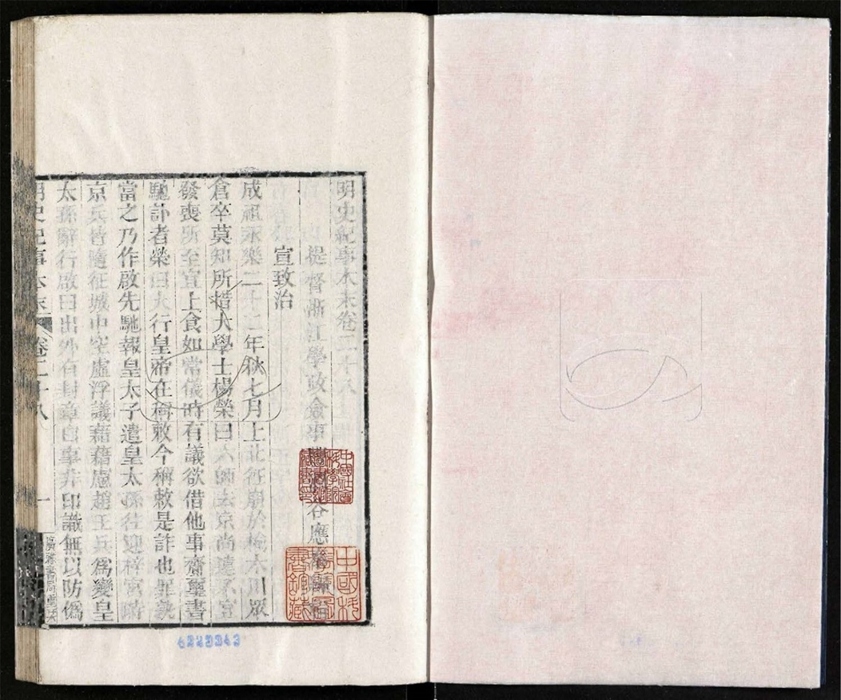 明史紀事本末卷二十八
提督浙江學政僉事
谷應
宣致治
成祖永樂二十二年秋七月上北征崩於榆木川眾
倉卒莫知所措大學士楊榮曰六師去京尚遠不宜
發喪所至宜上食如常儀時有議欲借他事齎璽書
馳訃者榮曰大行皇帝在稱敕今稱敕是詐也罪
當之乃作啟先馳報皇太子遣皇太孫往迎梓宮時
京兵皆隨征城中空虛浮議藉藉慮趙王兵為變皇
太孫辭行啟曰出外有封章白事非印識無以防偽
明史紀事本末
卷二十八
一
4229343